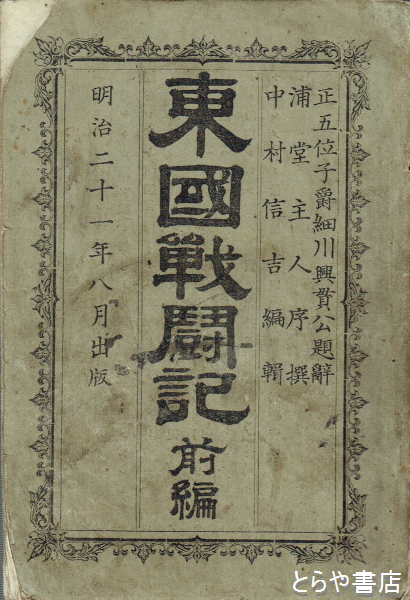 正五位子爵細川興貫公題辞
浦堂主人序撰
中村信吉編輯
東國戰鬪記 前編
明治二十一年八月出版
とらや書店